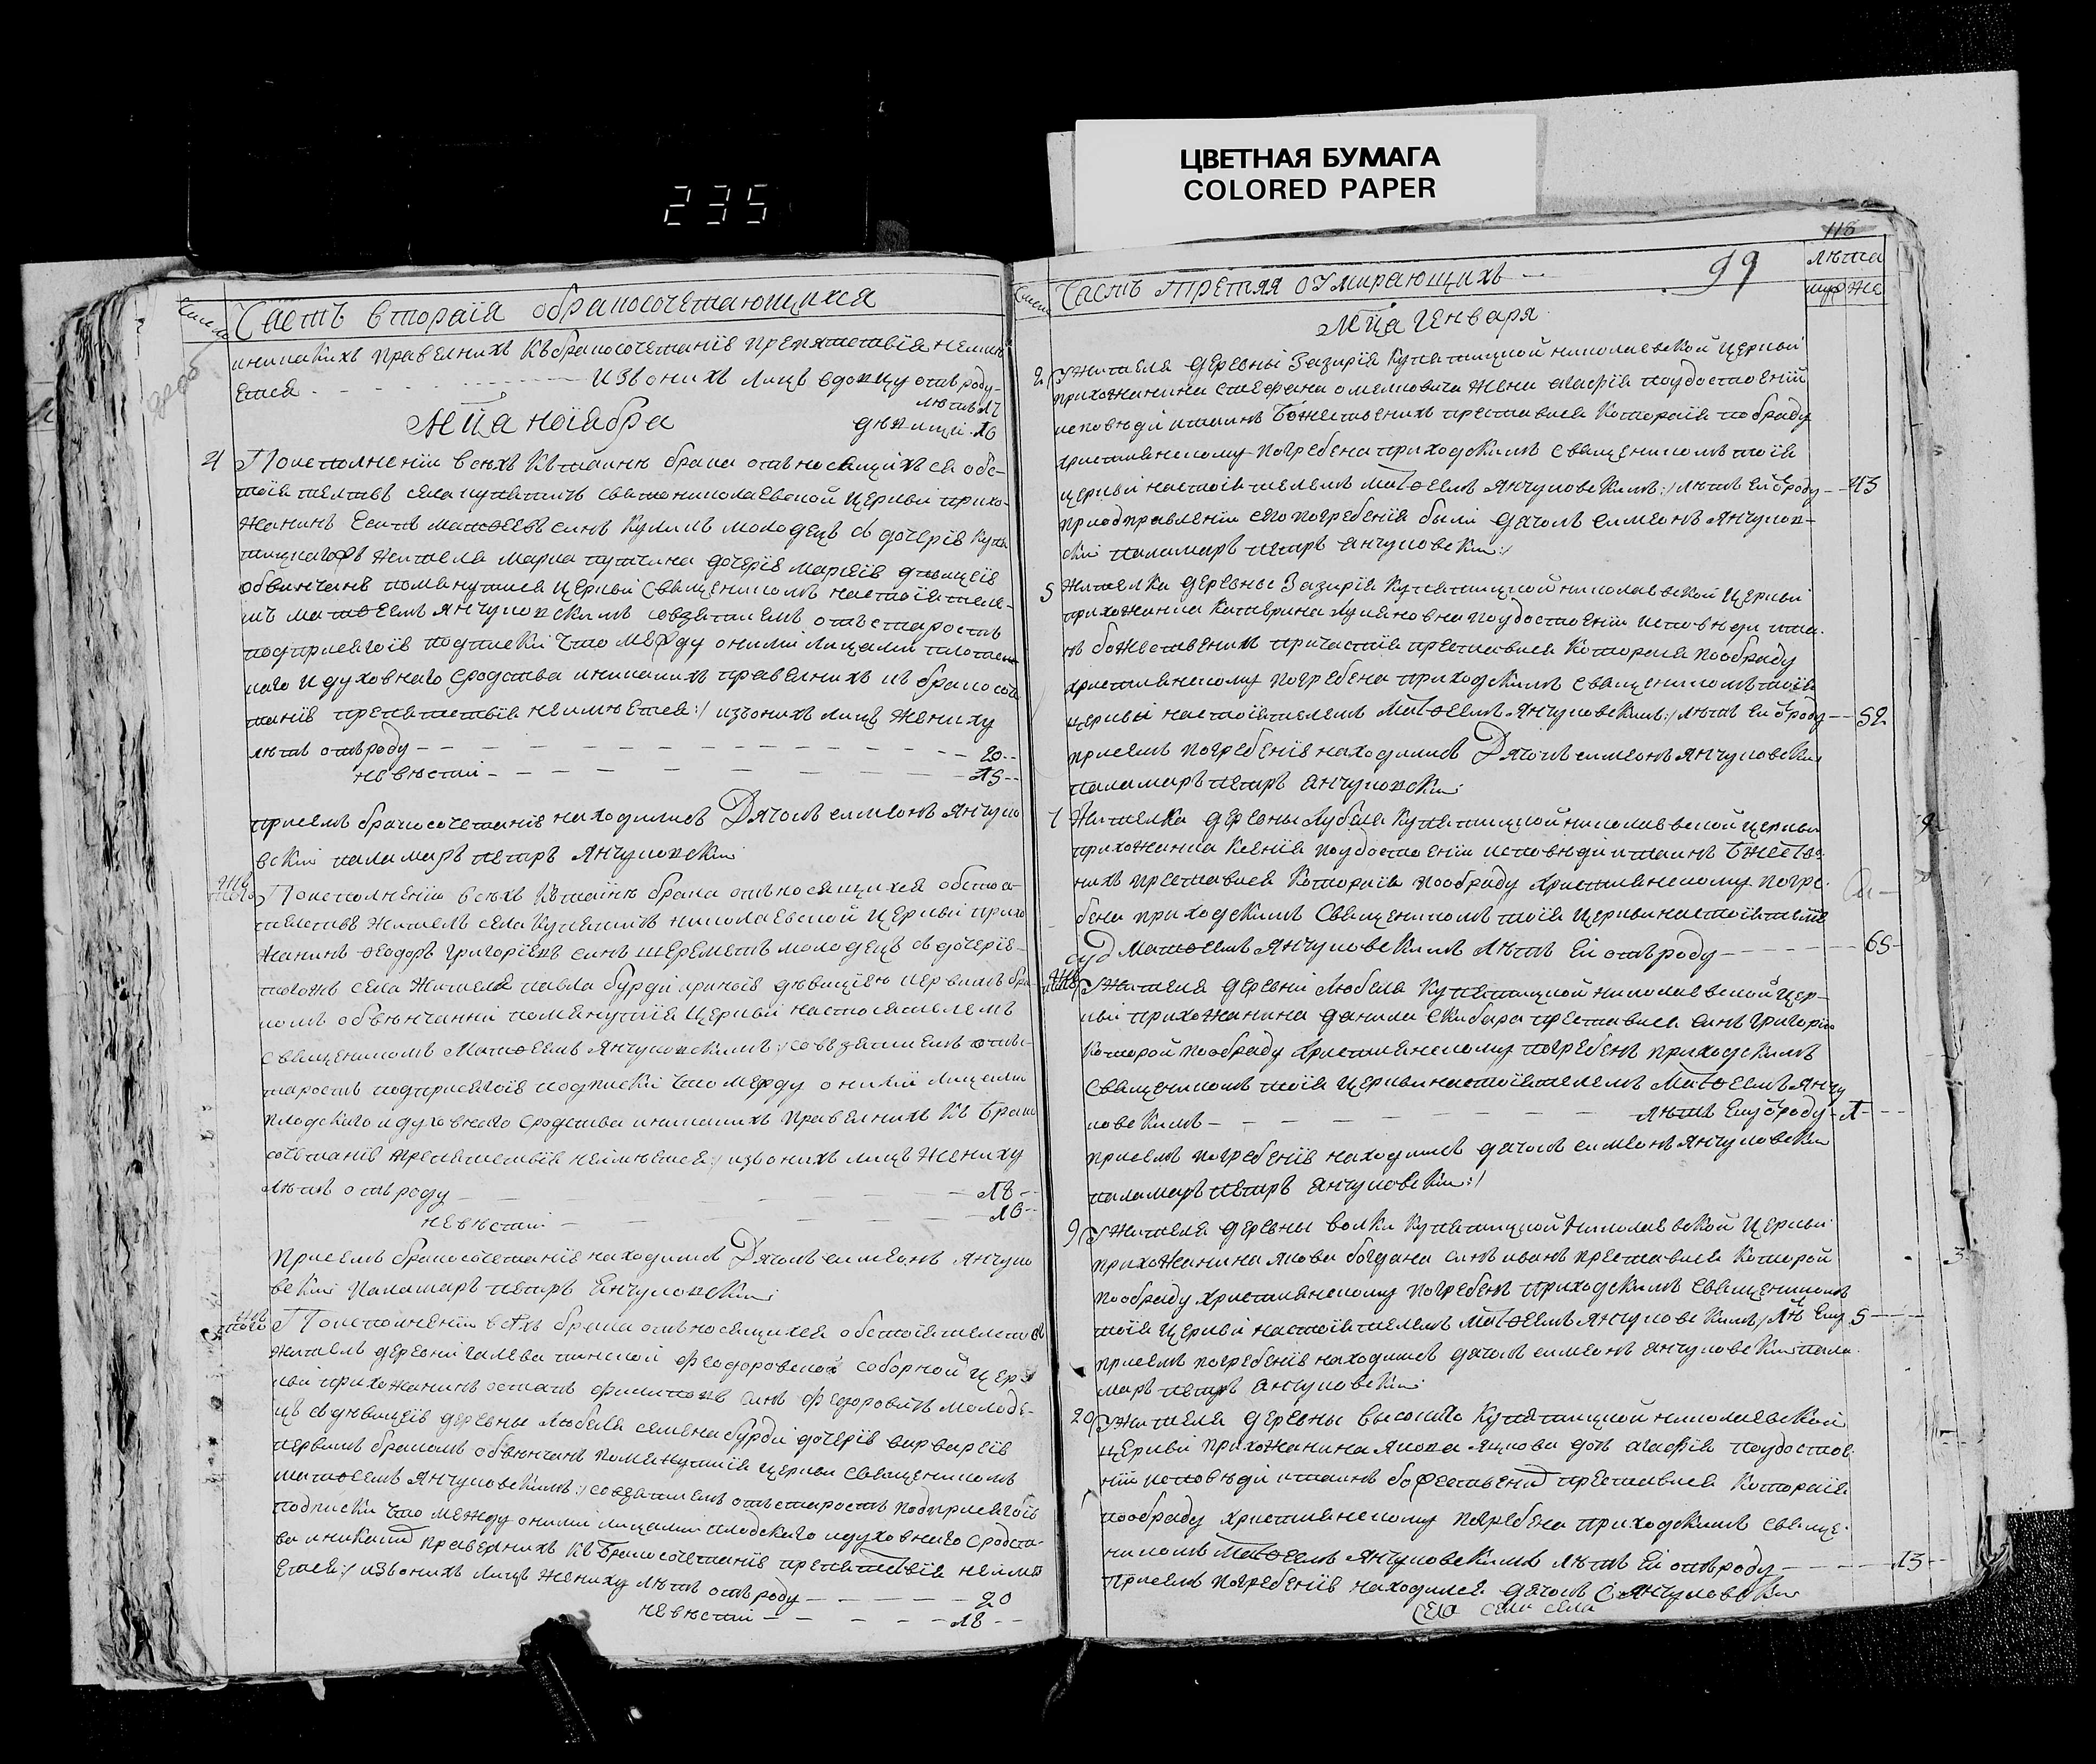 ЦВЕТНАЯ БУМАГА
COLORED PAPER
235
Часть вторая обракосочетающихся
иникакихъ правелнихъ къбракосочетанiе препятствiя неимѣ
ется извонихъ лицъ вдовцу отъ роду
лѣтъ
Мца ноiабра дѣвици 16
21 Поисполненiи всѣхъ къ таинѣ брака относящихъся обс-
тоiателтвъ села купятичъ святониколаевской церкви прихо-
жанинъ матθеевъ синъ молодецъ съ дочерiю купя
тицкаго жителя марка дочерiю марiею дѣвицею
обвинчанъ помянутыя церкви священикомъ настоiятеле-
мъ матθеемъ Янчуковскимъ совзятиемъ отъ старостъ
подприсягоiю подписки что между оними лицами плотс
каго и духовнаго сродства иникакихъ правелнихъ къ бракосоче
танiе препятствiя неимѣется:/ изъонихъ лицъ жениху
лѣтъ отъ роду 20
невѣсти 15
присемъ бракосочетанiе находилисъ Дячокъ симеонъ Янчуко
вски паламаръ петръ Янчуковски
того Поисполненiи всѣхъ ктаинѣ брака относящихся обстоя-
телствъ житель села купятичъ николаевской церкви прихо
жанинъ θеодоръ григорiевъ синъ шереметъ молодецъ съ дочерiе
тогожъ села жителя павла бурди дѣвицiею первимъ бра
комъ обвѣнчанни помянутiя церкви настоятелемъ
священикомъ Матθеемъ Янчуковскимъ:/ совзятиемъ отъ с
таростъ подприсягоiе подписки что между оними лицами
плодскаго и духовнаго сродства иникакихъ правелнихъ къ брако
сочетанiе препятствiя неимѣется:/ извонихъ лицъ жениху
лѣтъ отъ роду 18
невѣсти 16
Присемъ бракосочетанiе находилисъ Дячокъ симеонъ Янчуко
вски Паламаръ петръ Енчуковски
того Поисполненiи всѣхъ брака относящихся обстоiателствъ
житель деревни галева пинской феодоровской соборной цер
кви прихожанинъ остапъ филиповъ синъ федоровичъ молоде-
цъ съ дѣвицеiе деревни любеля семена бурди дочерiе варвареiе
первимъ бракомъ обвѣнчанъ помянутiя церкви священикомъ
матθеемъ Янчуковскимъ:/ совзятиемъ отъ старостъ подприсягоiе
подписки что между оними лицами плодскаго идуховнаго сродств
ва иникаких правелнихъ къ бракосочетанiе препятствiя неимѣ
ется:/ извонихъ лицъ жениху лѣтъ отъ роду 20
невѣсти 18
Часть третяя оумирающихъ 99
116
лѣта
муж же
Мца Генваря
2 Ужителя деревни Зазирiя Купятицкой николаевской церкви
прихожанина стефана омелковича жена агафiя поудостоенiи
исповѣди итаинъ божественихъ преставися которая пообраду
християнскому погребена приходскимъ священикомъ тоiя
церкви настоiателемъ матθеемъ Янчуковскимъ:/ лѣтъ Ей от роду 43
приодправленiи сего погребенiя были дячокъ симеонъ Янчуков-
ски паламаръ петръ Янчуковски:/
5 Жителка деревны Зазирiя Купятицкой николаевской церкви
прихожанка катарина лукяновна поудостоенiи исповѣди ита-
нъ божественихъ причастiя преставися которая пообраду
християнскому погребена приходскимъ священикомъ тоiя
церкви настоiателемъ Матθеемъ Янчуковскимъ:/ лѣтъ Ей от роду 52
присемъ погребенiе находилисъ Дячокъ симеонъ Янчуковски
паламаръ петръ Енчуковски
7 Жителка деревны Лубеля Купятицкой николаевской церкви
прихожанка ксенiя поудостоенiи исповѣди итаинъ бжестве
нихъ преставися которая пообраду християнскому погре-
бена приходскимъ священикомъ тоiя церкви настоiателе
Матθеемъ Янчуковскимъ лѣтъ Ей отъ роду 65
Ужителя деревни Любеля Купятицкой николаевской цер-
кви прихожанина данила скибара преставися синъ григорiй
которой пообраду християнскому погребенъ приходскимъ
священикомъ тоiя церкви настоiателемъ Матθеемъ Янчу
ковскимъ лѣтъ Ему от роду 1
присемъ погребенiе находилисъ дячокъ симеонъ Янчуковски
паламаръ петръ Янчуковски:/
9 Ужителя деревны волки Купятицкой Николаевской Церкви
прихожанина якова богдана синъ иванъ преставися которой
пообраду християнскому погребенъ приходскимъ священикомъ
тоiя церкви настоiателемъ матθеемъ Янчуковскимъ:/ лѣ Ему 5
присемъ погребенiе находилисъ дячокъ симеонъ Янчуковски пала-
маръ петръ Янчуковски
20 Ужителя деревны высокаго Купятицкой николаевской
церкви прихожанина якова дочь агафiя поудостое-
нiи исповѣди итаинъ божествених преставися которая
пообраду християнскому погребена приходскимъ священ-
никомъ матθеемъ Янчуковскимъ лѣтъ Ей отъ роду 13
Присемъ погребенiе находился дячокъ С Янчуковски
село село села